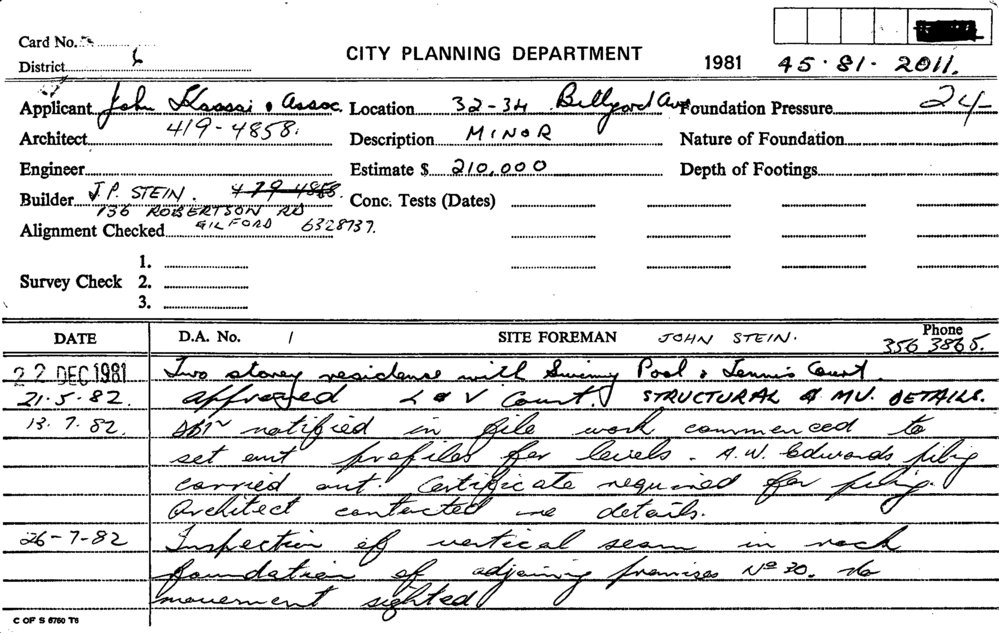 Card No.
District 6
CITY PLANNING DEPARTMENT 1981 45·81·2011.
Applicant John & Assoc. Location 32-34 Billyard Ave Foundation Pressure 24/-
Architect 419-4858. Description MINOR Nature of Foundation
Engineer Estimate $ 210,000 Depth of Footings
Builder J.P. STEIN. 419 4858. Conc. Tests (Dates)
136 ROBERTSON RD
Alignment Checked GILFORD 6328737.
1.
Survey Check 2.
3.
DATE D.A. No. / SITE FOREMAN JOHN STEIN. Phone 356 3865.
22 DEC 1981 Two storey residence with Swimmg Pool & Tennis Court.
21·5·82. approved L & V Court. STRUCTURAL & MV. DETAILS.
13.7.82. notified in file work commenced to
set out profiles for levels. A.W. Edwards piling
carried out Certificate required for piling.
Architect contacted re details.
26-7-82 Inspection of vertical seam in rock
foundation of adjoining premises No 30. No
movement sighted
C OF S 6760 T6